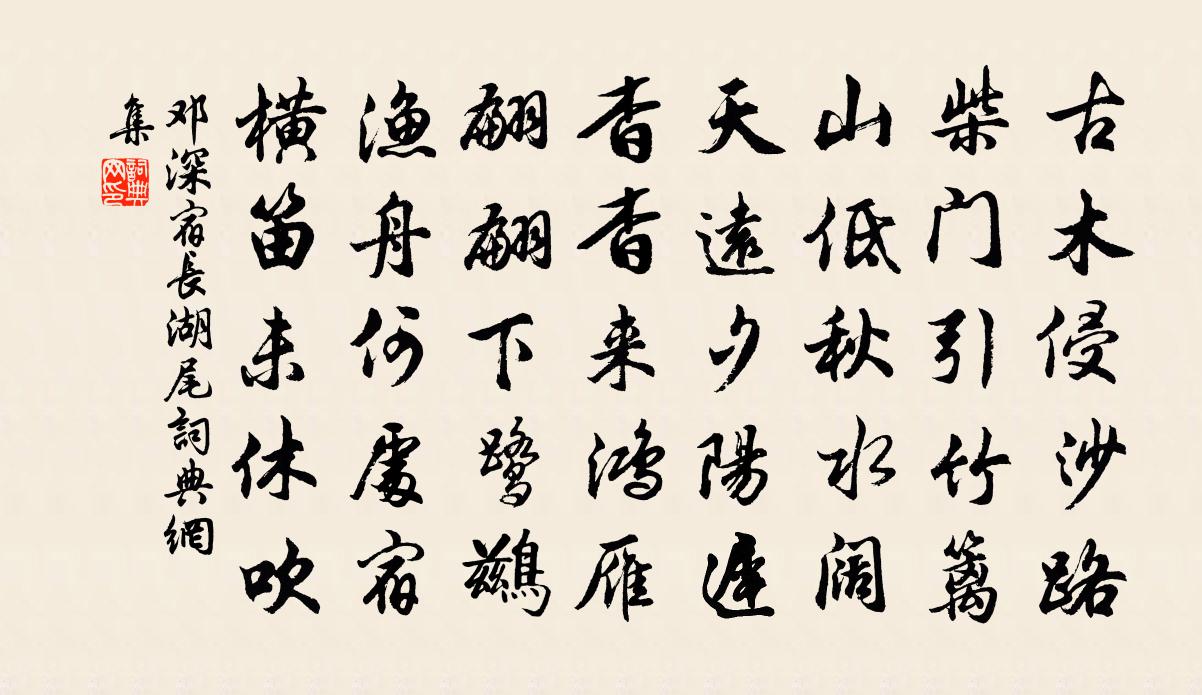 古木侵沙路
柴门引竹篱
山低秋水阔
天遠夕陽遲
杳杳来鸿雁
翩翩下鹭鷀
渔舟何處宿
横笛未休吹
邓深宿長湖尾詞典網
集
詞典网印